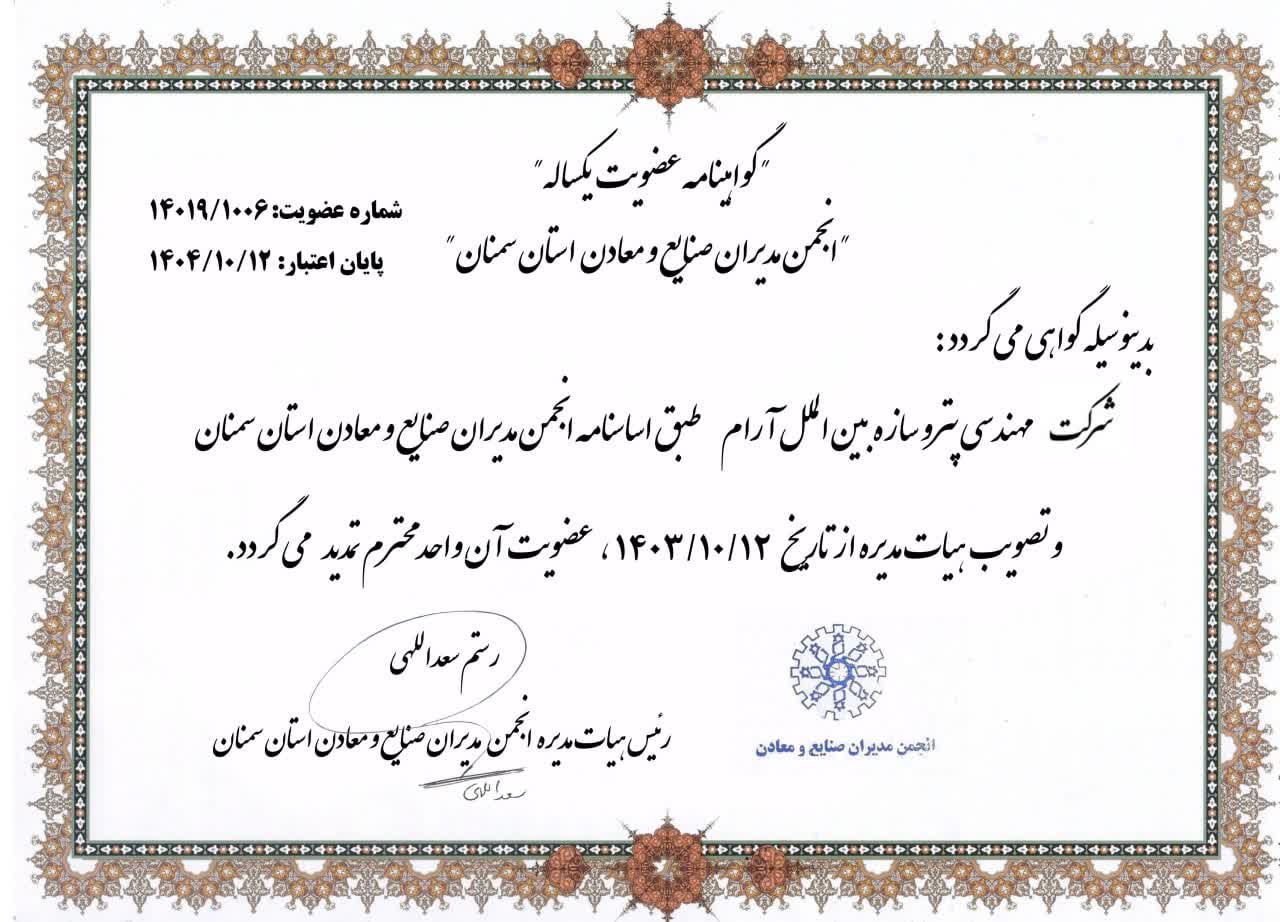 "گواهینامه عضویت یکساله"
شماره عضویت: ۱۴۰۱۹/۱۰۰۶
"انجمن مدیران صنایع و معادن استان سمنان"
پایان اعتبار: ۱۴۰۴/۱۰/۱۲
بدینوسیله گواهی می گردد:
شرکت مهندسی پترو سازه بین الملل آرام طبق اساسنامه انجمن مدیران صنایع و معادن استان سمنان
و تصویب هیات مدیره از تاریخ ۱۴۰۳/۱۰/۱۲، عضویت آن واحد محترم تمدید می گردد.
رستم سعداللهی
رئیس هیات مدیره انجمن مدیران صنایع و معادن استان سمنان
انجمن مدیران صنایع و معادن
سعداللهی